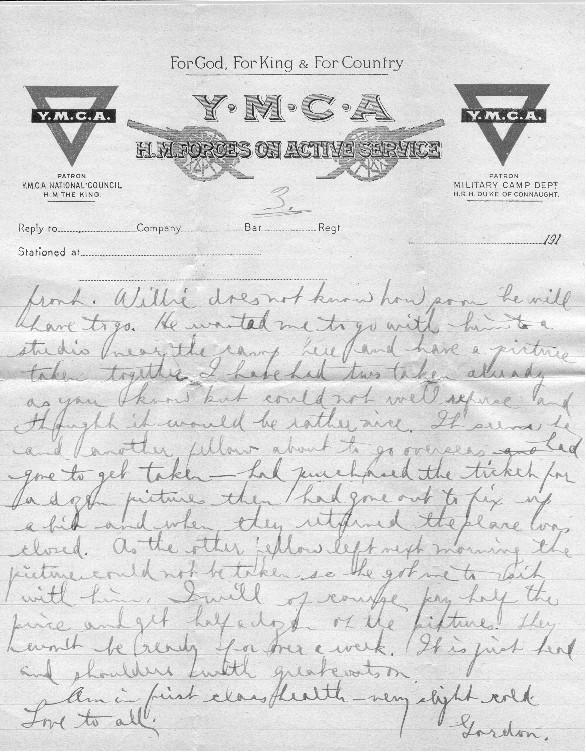 For God, For King & For Country
Y·M·C·A
Y.M.C.A.
Y.M.C.A.
H.M. FORCES ON ACTIVE SERVICE
PATRON
Y.M.C.A. NATIONAL COUNCIL
H.M. THE KING.
PATRON
MILITARY CAMP DEPT
H.R.H. DUKE OF CONNAUGHT.
3.
Reply to Company Bat. Regt
191
Stationed at
front. Willie does not know how soon he will
have to go. He wanted me to go with him to a
studio near the camp here and have a picture
taken together. I have had two taken already
as you know but could not well refuse and
thought it would be rather nice. It seems he
and another fellow about to go overseas had
gone to get taken – had purchased the ticket for
a dozen pictures then had gone out to fix up
a bit and when they returned the place was
closed. As the other fellow left next morning the
picture could not be taken so he got me to sit
with him. I will of course pay half the
price and get half a dozen of the pictures. They
won't be ready for over a week. It is just head
and shoulders with greatcoats on.
Am in first class health – very slight cold
Love to all.
Gordon.